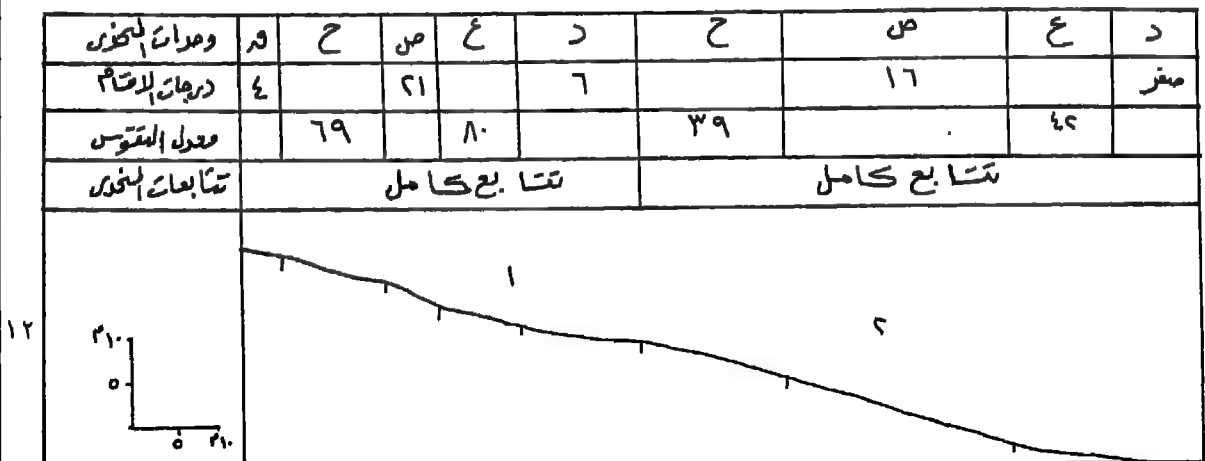 وحدات المنحدر ق ح ص ع د ح ص ع د
درجات الاقسام ٤ ٢١ ٦ ١٦ صفر
معدل التقوس ٦٩ ٨٠ ٣٩ ٤٢
تتابعات المنحدر تتابع كامل تتابع كامل
١
٢
١٢
١٠م
٥
٥ ١٠م